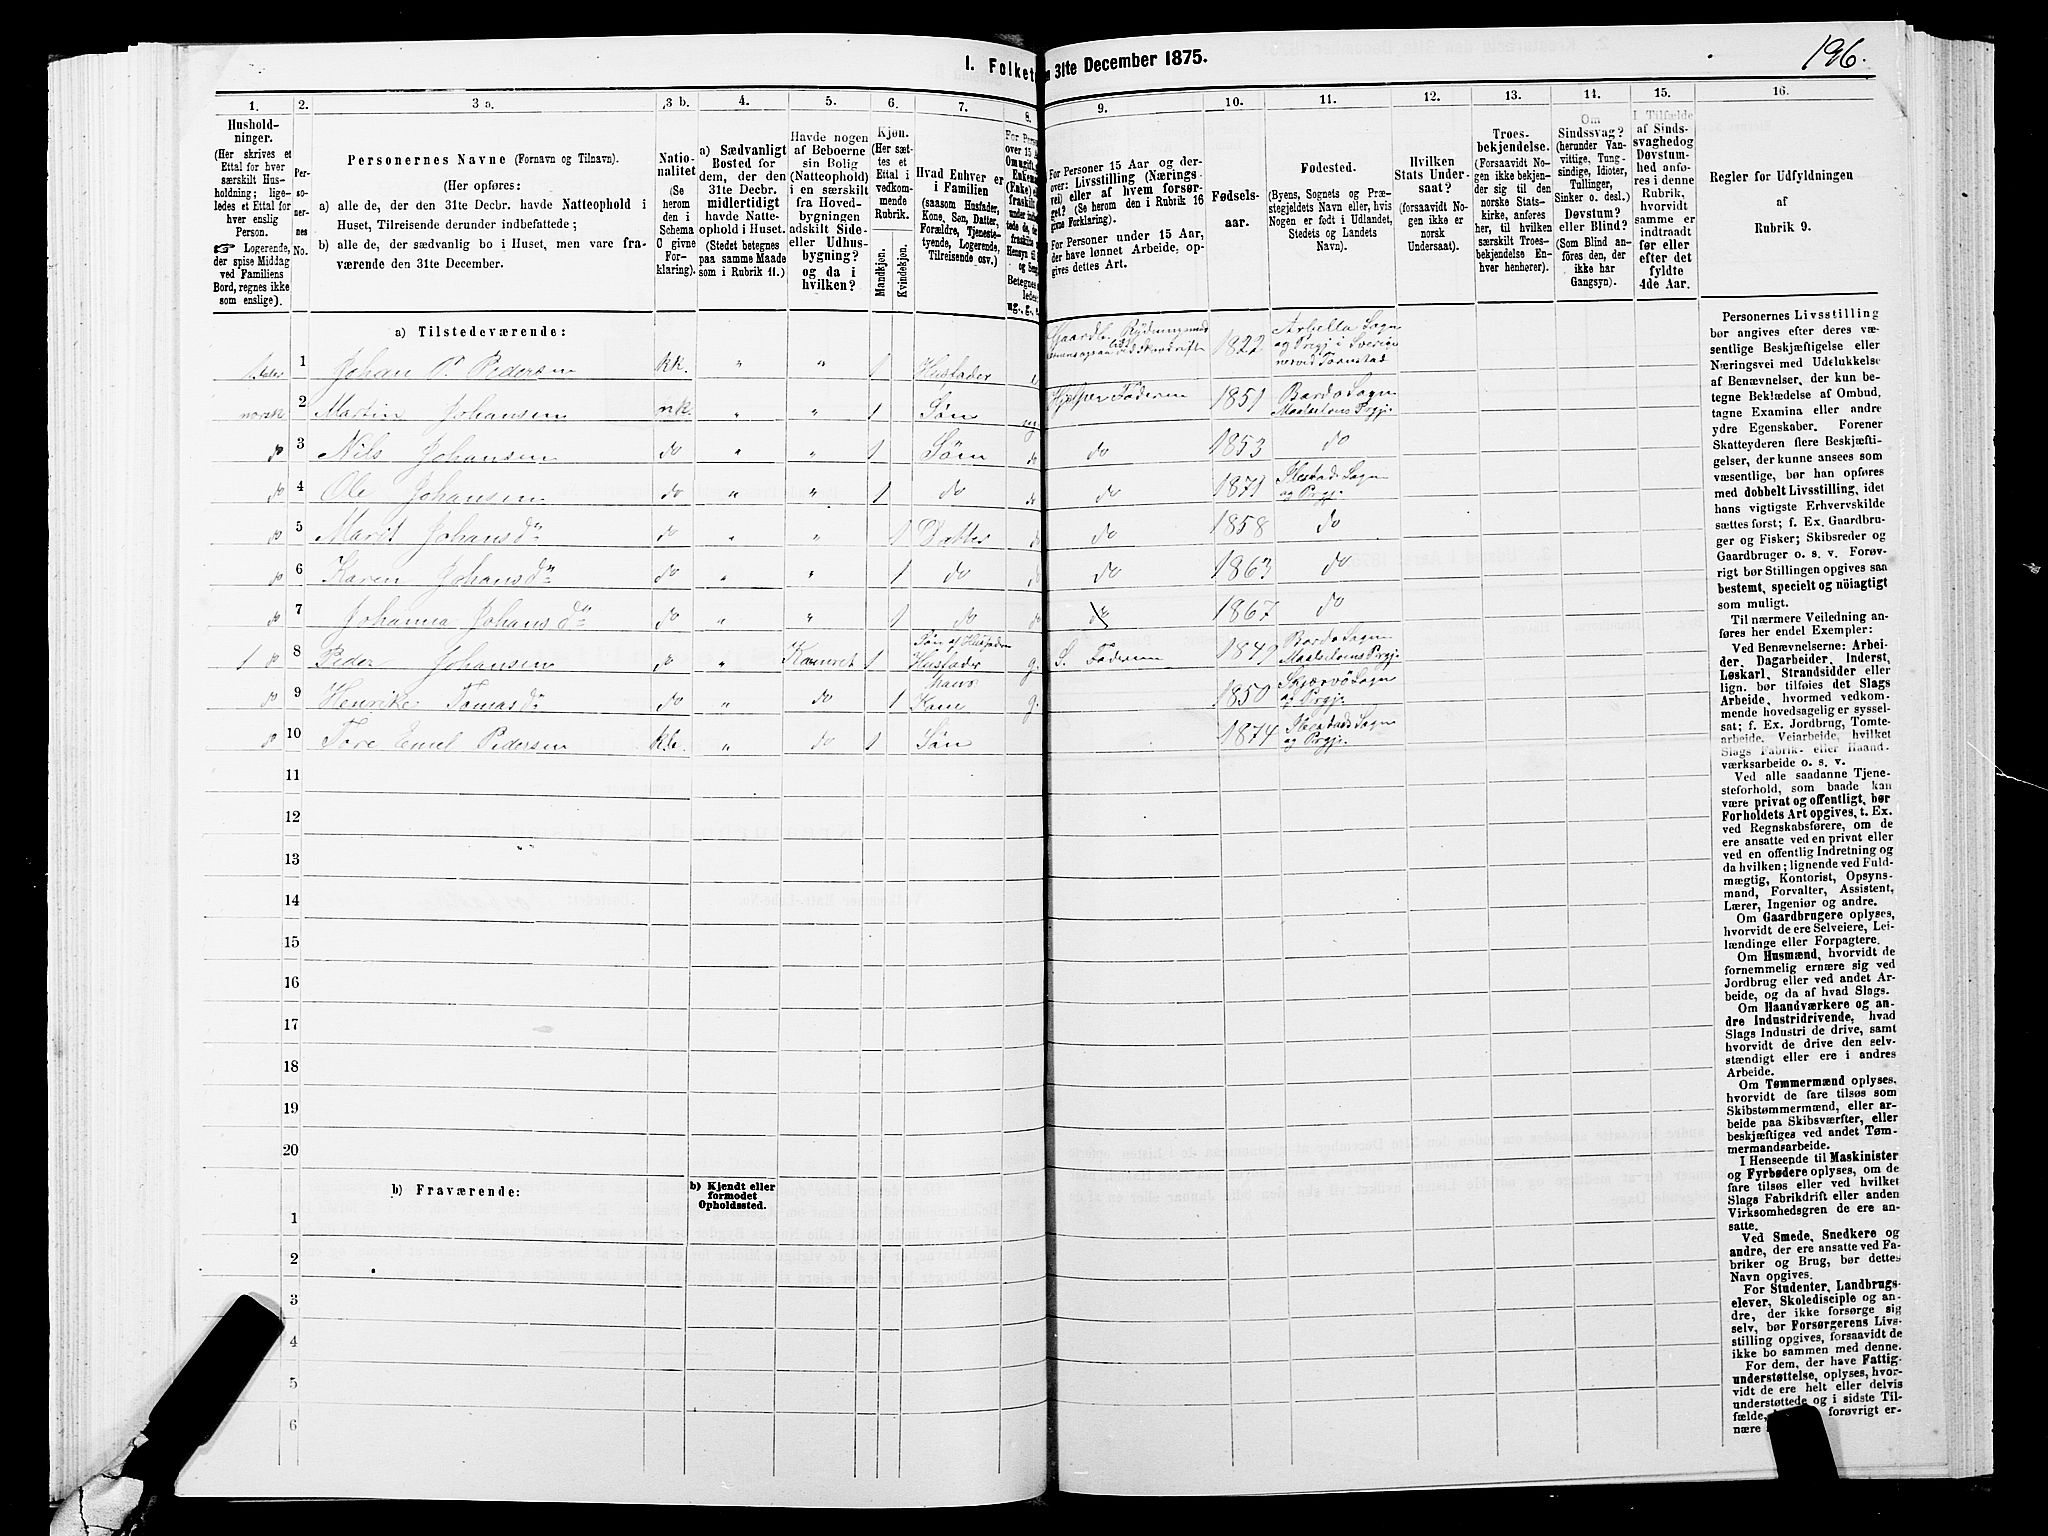 I. Folket
n 31te December 1875.
196.
1.
Hushold-
ninger.
(Her skrives et
Ettal for hver
særskilt Hus-
holdning; lige-
ledes et Ettal for
hver enslig
Person.
☞ Logerende,
der spise Middag
ved Familiens
Bord, regnes ikke
som enslige).
2.
Per-
so-
ner-
nes
No.
3 a.
Personernes Navne (Fornavn og Tilnavn).
(Her opføres:
a) alle de, der den 31te Decbr. havde Natteophold i
Huset, Tilreisende derunder indbefattede;
b) alle de, der sædvanlig bo i Huset, men vare fra-
værende den 31te December.
3 b.
Natio-
nalitet
(Se
herom
den i
Schema
O givne
For-
klaring).
4.
a) Sædvanligt
Bosted for
dem, der den
31te Decbr.
midlertidigt
havde Natte-
ophold i Huset.
(Stedet betegnes
paa samme Maade
som i Rubrik 11.)
5.
Havde nogen
af Beboerne
sin Bolig
(Natteophold)
i en særskilt
fra Hoved-
bygningen
adskilt Side-
eller Udhus-
bygning?
og da i
hvilken?
6.
Kjøn.
(Her sæt-
tes et
Ettal i
vedkom-
mende
Rubrik.
Mandkjøn.
Kvindekjøn.
7.
Hvad Enhver er
i Familien
(saasom Husfader,
Kone, Søn, Datter,
Forældre, Tjeneste-
tyende, Logerende,
Tilreisende osv.)
8.
9.
For Personer 15 Aar og der-
over: Livsstilling (Nærings-
vei) eller af hvem forsør-
get? (Se herom den i Rubrik 16
givne Forklaring.)
For Personer under 15 Aar,
der have lønnet Arbeide, op-
gives dettes Art.
10.
Fødsels-
aar.
11.
Fødested.
(Byens, Sognets og Præ-
stegjeldets Navn eller, hvis
Nogen er født i Udlandet,
Stedets og Landets
Navn).
12.
Hvilken
Stats Under-
saat?
(forsaavidt No-
gen ikke er
norsk
Undersaat).
13.
Troes-
bekjendelse.
(Forsaavidt No-
gen ikke bekjen-
der sig til den
norske Stats-
kirke, anføres
her, til hvilken
særskilt Troes-
bekjendelse En-
hver henhører).
14.
Om
Sindssvag?
(herunder Van-
vittige, Tung-
sindige, Idioter,
Tullinger,
Sinker o. desl.)
Døvstum?
eller Blind?
(Som Blind an-
føres den, der
ikke har
Gangsyn).
15.
I Tilfælde
af Sinds-
svaghedog
Døvstum-
hed anfø-
res i denne
Rubrik,
hvorvidt
samme er
indtraadt
før eller
efter det
fyldte
4de Aar.
16.
Regler for Udfyldningen
af
Rubrik 9.
a) Tilstedeværende:
1 Johan P. Pedersen kk. " " 1 Husfader 1822 Sogn og Prgj i Sverige
norsk 2 Martin Johansen nk. " " 1 Søn ug Hjelper Faderen 1851 Bardo Sogn Maalselvens Prgj.
do 3 Nils Johansen do " " 1 Søn do do 1853 do
do 4 Ole Johansen do " " 1 do do do 1871 Ibestads Sogn og Prgj.
do 5 Marit Johansdr do " " 1 Datter do do 1858 do
do 6 Karen Johansdr do " " 1 do do do 1863 do
do 7 Johanna Johansdr do " " 1 do do do 1867 do
1 do 8 Peder Johansen do " 1 Søn af Husfaderen Husfader g. S. Faderen 1849 Bardo Sogn Maalselvens Prgj.
do 9 Henrike Tomasdr do " do 1 hans Kone g. 1850 Skjærvö Sogn og Prgj.
do 10 Tore Emel Pedersen " do 1 Søn 1874 Ibestads Sogn og Prgj.
11
12
13
14
15
16
17
18
19
20
b) Fraværende:
b) Kjendt eller
formodet
Opholdssted.
1
2
3
4
5
6
Personernes Livsstilling
bør angives efter deres væ-
sentlige Beskjæftigelse eller
Næringsvei med Udelukkelse
af Benævnelser, der kun be-
tegne Beklædelse af Ombud,
tagne Examina eller andre
ydre Egenskaber. Forener
Skatteyderen flere Beskjæfti-
gelser, der kunne ansees som
væsentlige, bør han opføres
med dobbelt Livsstilling, idet
hans vigtigste Erhvervskilde
sættes først; f. Ex. Gaardbru-
ger og Fisker; Skibsreder og
Gaardbruger o. s. v. Forøv-
rigt bør Stillingen opgives saa
bestemt, specielt og nöiagtigt
som muligt.
Til nærmere Veiledning an-
føres her endel Exempler:
Ved Benævnelserne: Arbei-
der, Dagarbeider, Inderst,
Løskarl, Strandsidder eller
lign. bør tilføies det Slags
Arbeide, hvormed vedkom-
mende hovedsagelig er syssel-
sat; f. Ex. Jordbrug, Tomte-
arbeide, Veiarbeide, hvilket
Slags Fabrik- eller Haand-
værksarbeide o. s. v.
Ved alle saadanne Tjene-
steforhold, som baade kan
være privat og offentligt, bør
Forholdets Art opgives, t. Ex.
ved Regnskabsførere, om de
ere ansatte ved en privat eller
ved en offentlig Indretning og
da hvilken; lignende ved Fuld-
mægtig, Kontorist, Opsyns-
mand, Forvalter, Assistent,
Lærer, Ingeniør og andre.
Om Gaardbrugere oplyses,
hvorvidt de ere Selveiere, Lei-
lændinge eller Forpagtere.
Om Husmænd, hvorvidt de
fornemmelig ernære sig ved
Jordbrug eller ved andet Ar-
beide, og da af hvad Slags.
Om Haandværkere og an-
dre Industridrivende, hvad
Slags Industri de drive, samt
hvorvidt de drive den selv-
stændigt eller ere i andres
Arbeide.
Om Tømmermænd oplyses,
hvorvidt de fare tilsøs som
Skibstømmermænd, eller ar-
beide paa Skibsværfter, eller
beskjæftiges ved andet Tøm-
mermandsarbeide.
I Henseende til Maskinister
og Fyrbødere oplyses, om de
fare tilsøs eller ved hvilket
Slags Fabrikdrift eller anden
Virksomhedsgren de ere an-
satte.
Ved Smede, Snedkere og
andre, der ere ansatte ved Fa-
briker og Brug, bør dettes
Navn opgives.
For Studenter, Landbrugs-
elever, Skoledisciple og an-
dre, der ikke forsørge sig
selv, bør Forsørgerens Livs-
stilling opgives, forsaavidt de
ikke bo sammen med denne.
For dem, der have Fattig-
understøttelse, oplyses, hvor-
vidt de ere helt eller delvis
understøttede og i sidste Til-
fælde, forøvrigt er-
nære